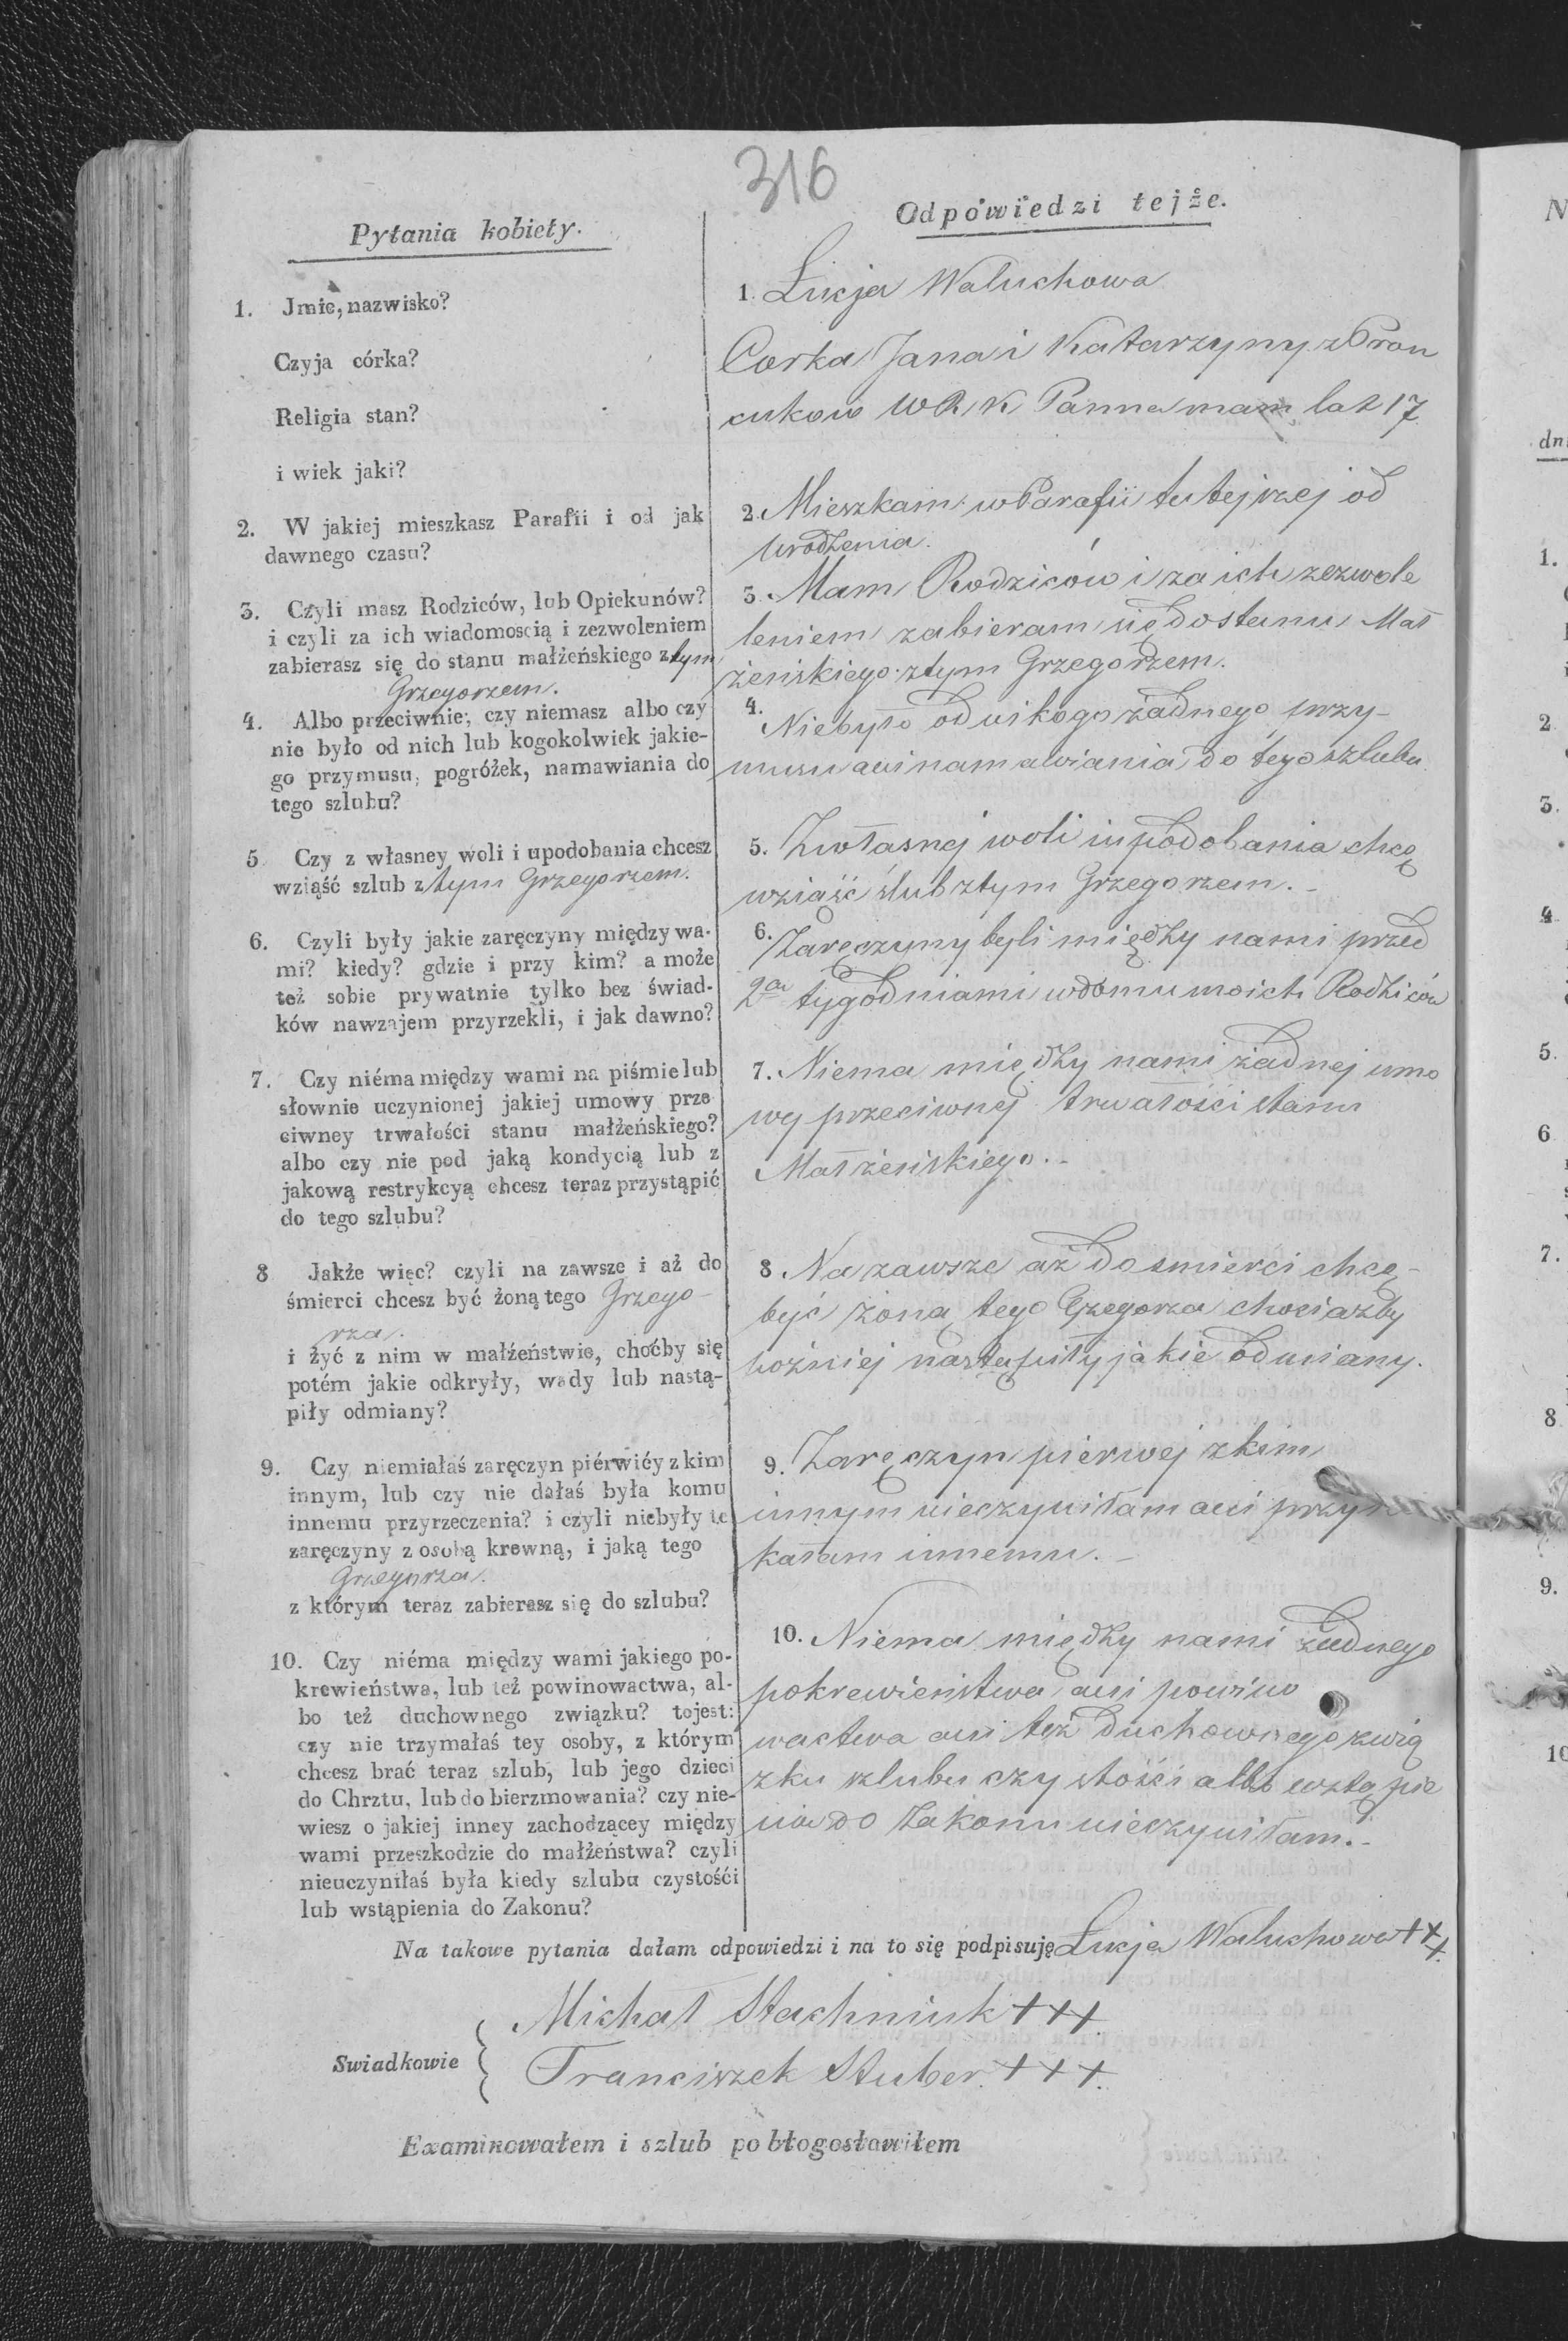 316
Pytania kobiety.
Odpowiedzi tejże.
1. Jmie, nazwisko?
Czyja córka?
Religia stan?
i wiek jaki?
1. Łucja Waluchowa
Corka Jana i Katarzyny z Pron
cukow W R K Panna mam lat 17
2. W jakiej mieszkasz Parafii i od jak
dawnego czasu?
2. Mieszkam w Parafii tutejszej od
urodzenia.
3. Czyli masz Rodziców, lub Opiekunów?
i czyli za ich wiadomoscią i zezwoleniem
zabierasz się do stanu małżeńskiego z tym
Grzegorzem.
3. Mam Rodziców i za ich zezwole
leniem zabieram się do stanu Mał
żeńskiego z tym Grzegorzem.
4. Albo przeciwnie, czy niemasz albo czy
nie było od nich lub kogokolwiek jakie-
go przymusu, pogróżek, namawiania do
tego szlubu?
4. Niebyło od nikogo żadnego przy-
musu ani namawiania do tego szlubu
5. Czy z własney woli i upodobania chcesz
wziąść szlub z tym Grzegorzem.
5. Zwłasnej woli i upodobania chcę
wziąść slub z tym Grzegorzem.-
6. Czyli były jakie zaręczyny między wa-
mi? kiedy? gdzie i przy kim? a może
też sobie prywatnie tylko bez świad-
ków nawzajem przyrzekli, i jak dawno?
6. Zaręczyny byli między nami przed
2a tygodniami w domu moich Rodziców
7. Czy niéma między wami na piśmie lub
słownie uczynionej jakiej umowy prze
ciwney trwałości stanu małżeńskiego?
albo czy nie pod jaką kondycią lub z
jakową restrykcyą chcesz teraz przystąpić
do tego szlubu?
7. Niema między nami żadnej umo
wy przeciwnej trwałości stanu
Małżeńskiego.-
8 Jakże więc? czyli na zawsze i aż do
śmierci chcesz być żoną tego Grzego-
rza.
i żyć z nim w małżeństwie, choćby się
potém jakie odkryły, wady lub nastą-
piły odmiany?
8. Na zawsze aż do smierci chcę-
być żoną tego Grzegorza chociażby
poźniej nastąpiły jakie odmiany.
9. Czy niemiałaś zaręczyn piérwićy z kim
innym, lub czy nie dałaś była komu
innemu przyrzeczenia? i czyli niebyły te
zaręczyny z osobą krewną, i jaką tego
Grzegorza.
z którym teraz zabierasz się do szlubu?
9. Zaręczyn pierwej z kim
innym nieczyniłam ani przy
kałam innemu.-
10. Czy niéma między wami jakiego po-
krewieństwa, lub też powinowactwa, al-
bo też duchownego związku? tojest:
czy nie trzymałaś tey osoby, z którym
chcesz brać teraz szlub, lub jego dzieci
do Chrztu, lub do bierzmowania? czy nie-
wiesz o jakiej inney zachodzącey między
wami przeszkodzie do małżeństwa? czyli
nieuczyniłaś była kiedy szlubu czystośći
lub wstąpienia do Zakonu?
10. Niema między nami żadnego
pokrewieństwa ani powino
wactwa ani też duchownego zwią
zku szlubu czystości albo wstąpie
nia do Zakonu nieczyniłam.-
Na takowe pytania dałam odpowiedzi i na to się podpisuję Łucja Waluchowa +++.
Swiadkowie
Michał Stachniuk +++.
Franciszek Stuber. +++.
Examinowałem i szlub pobłogosławiłem
N
dn
1.
2
3.
4
5.
6
7.
8
9.
10